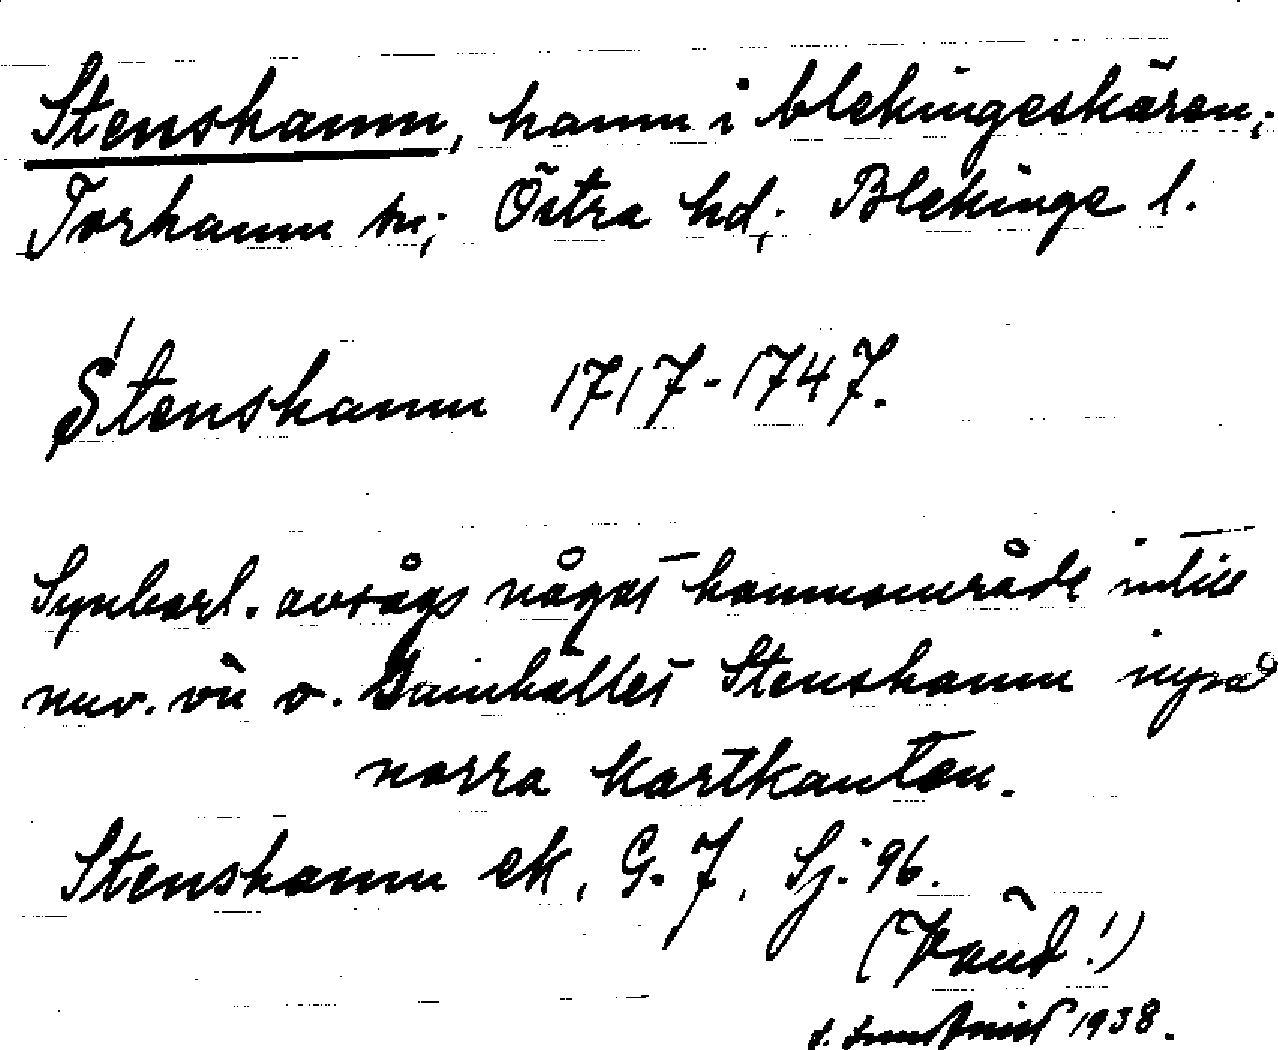 Stenshamn, hamn i blekingeskären;
Torhamn sn; Östra hd; Blekinge l.
Stenshamn 1717-1747.
Synbarl. avsågs något hamnområde intill
nuv. vid o. Samhället Stenshamn invid
norra kartkanten.
Stenshamn ek, G. J, Sj. 96.
(Vänd!)
1938.